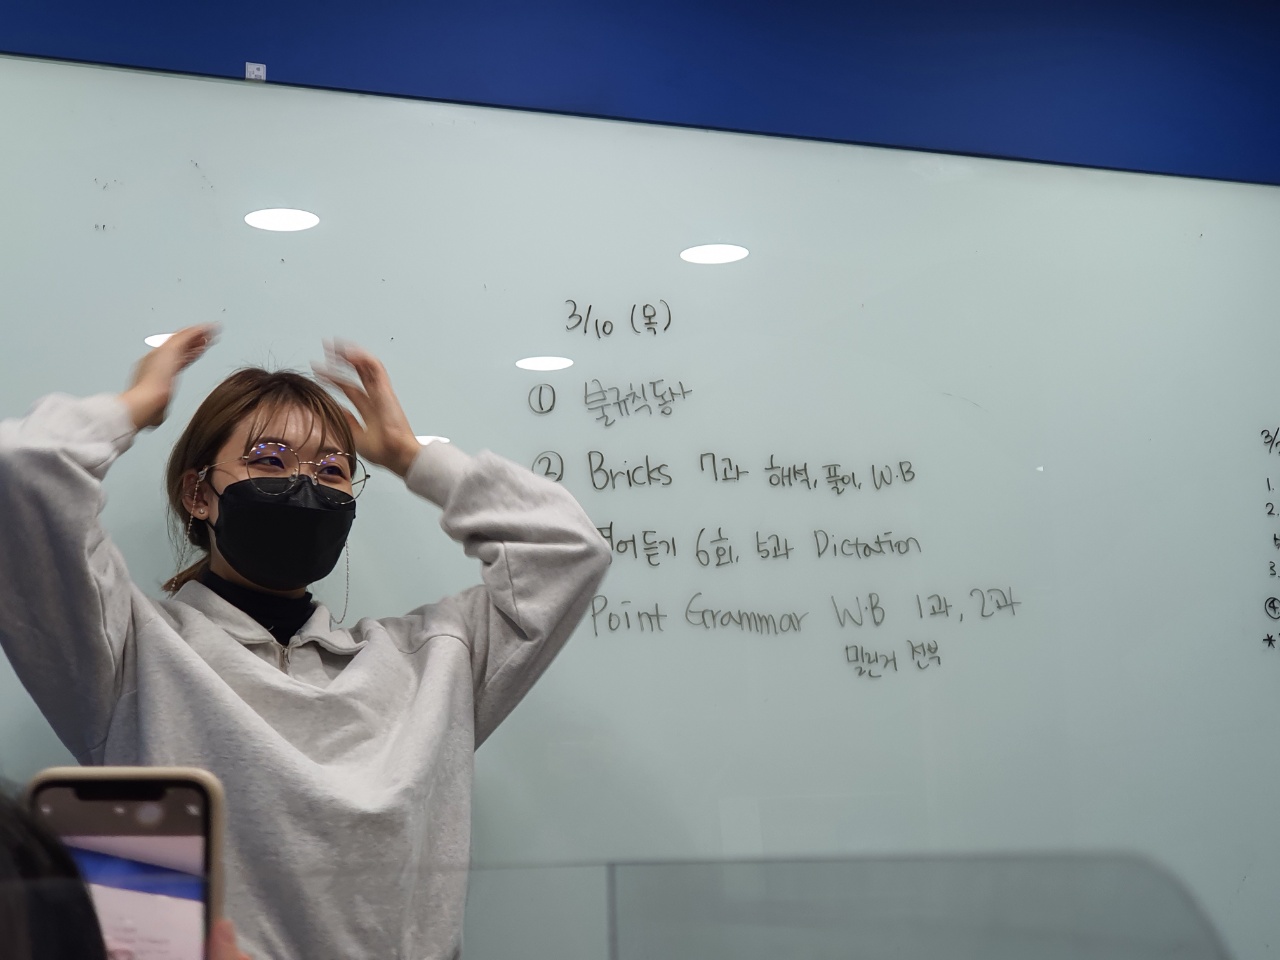 3/10 (목)
① 불규칙동사
② Bricks 7과 해석, 풀이, W.B
영어듣기 6회, 5과 Dictation
Point Grammar W.B 1과, 2과
밀린거 전부
3/
1.
2.
3.
④
*